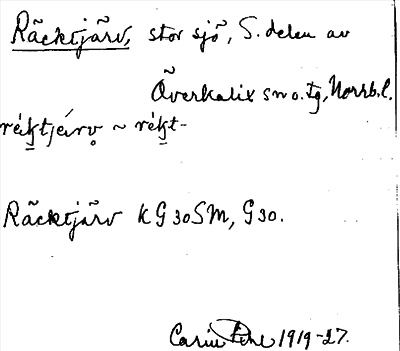 Räcktjärv, stor sjö, S. delen av
Överkalix sn o. tg, Norrb. l.
réḵtjéirv̥ ~ réḵt-
Räcktjärv KG30SM, G30.
Carin Pihl 1919-27.